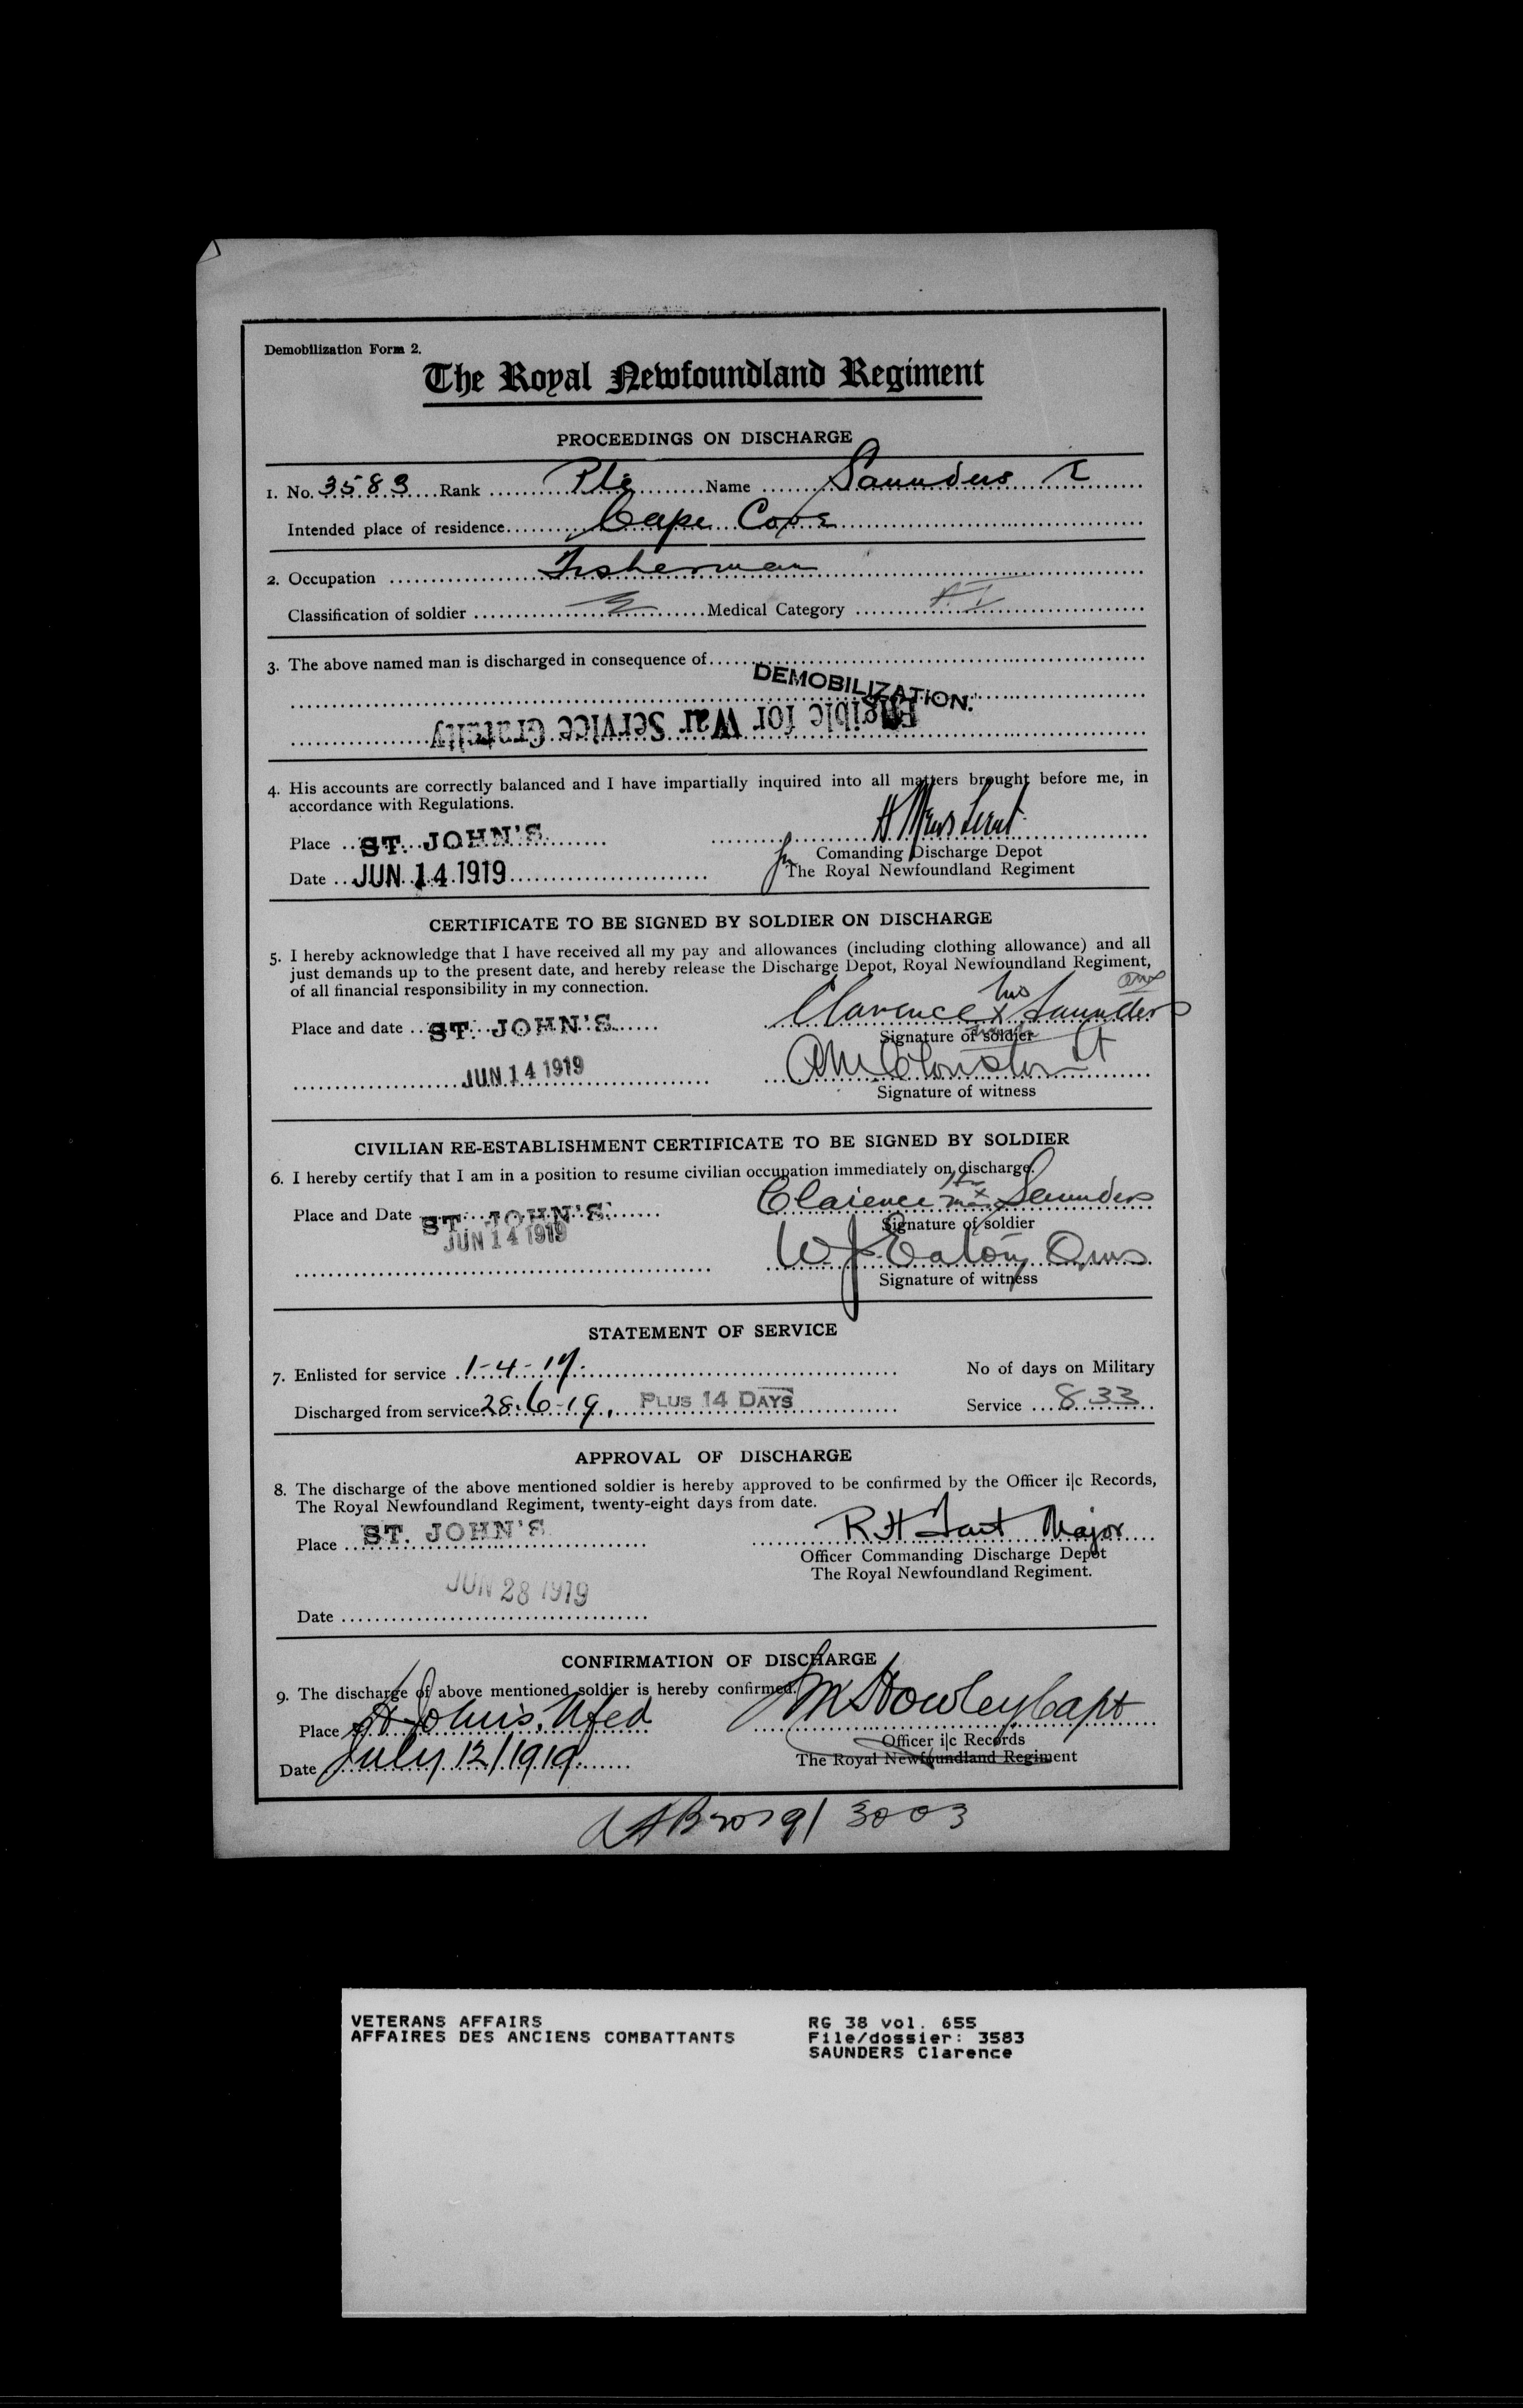 Demobilization Form 2.
The Royal Newfoundland Regiment
PROCEEDINGS ON DISCHARGE
1. No. 3583 Rank Pte Name Saunders
Intended place of residence Cape Cove
2. Occupation Fisherman
Classification of soldier Medical Category
3. The above named man is discharged in consequence of
DEMOBILIZATION.
Eligible for War Service Gratuity
4. His accounts are correctly balanced and I have impartially inquired into all matters brought before me, in
accordance with Regulations.
Place ST. JOHN'S
for Comanding Discharge Depot
Date JUN 14 1919 The Royal Newfoundland Regiment
CERTIFICATE TO BE SIGNED BY SOLDIER ON DISCHARGE
5. I hereby acknowledge that I have received all my pay and allowances (including clothing allowance) and all
just demands up to the present date, and hereby release the Discharge Depot, Royal Newfoundland Regiment,
of all financial responsibility in my connection.
Place and date ST. JOHN'S Clarence his X Saunders
Signature of soldier
JUN 14 1919
Signature of witness
CIVILIAN RE-ESTABLISHMENT CERTIFICATE TO BE SIGNED BY SOLDIER
6. I hereby certify that I am in a position to resume civilian occupation immediately on discharge.
Place and Date ST. JOHN'S Clarence X Saunders
JUN 14 1919 Signature of soldier
W J Eaton
Signature of witness
STATEMENT OF SERVICE
7. Enlisted for service 1-4-17. No of days on Military
Discharged from service 28.6-19. PLUS 14 DAYS Service 833
APPROVAL OF DISCHARGE
8. The discharge of the above mentioned soldier is hereby approved to be confirmed by the Officer i|c Records,
The Royal Newfoundland Regiment, twenty-eight days from date.
Place ST. JOHN'S R H Tait Major
Officer Commanding Discharge Depot
The Royal Newfoundland Regiment.
JUN 28 1919
Date
CONFIRMATION OF DISCHARGE
9. The discharge of above mentioned soldier is hereby confirmed.
Place St John's, Nfld Howley Capt
Officer i|c Records
Date July 12/1919 The Royal Newfoundland Regiment
3003
VETERANS AFFAIRS RG 38 vol. 655
AFFAIRES DES ANCIENS COMBATTANTS File/dossier: 3583
SAUNDERS Clarence